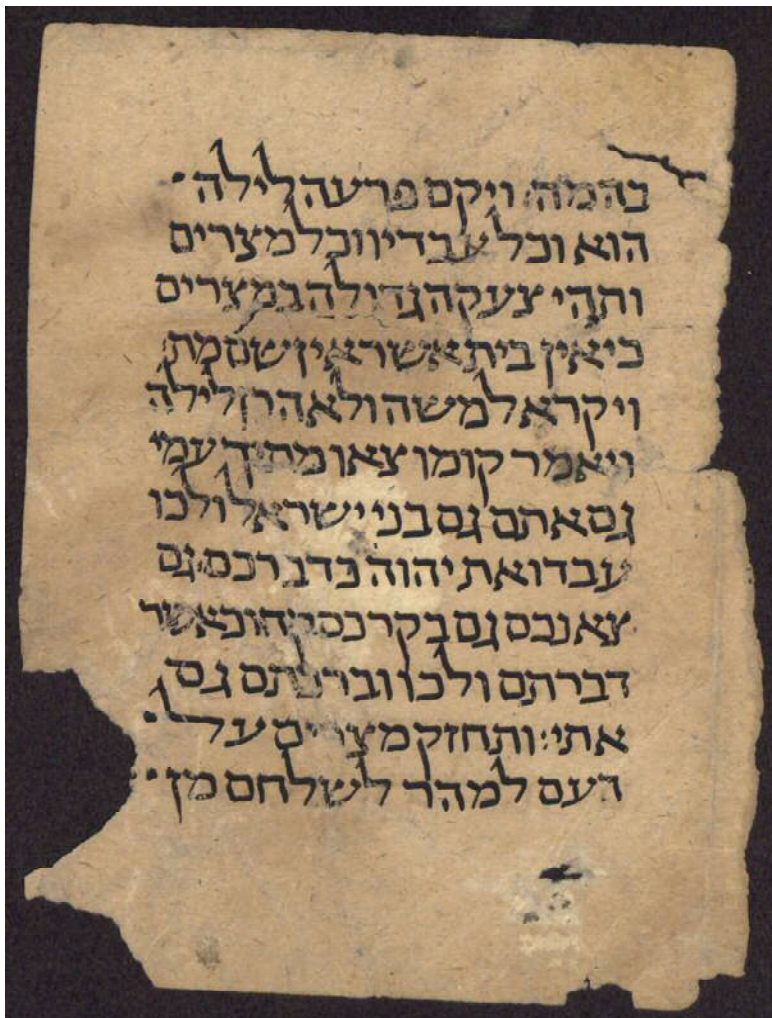 בהמה: ויקם פרעה לילה
הוא וכל עבדיו וכל מצרים
ותהי צעקה גדולה במצרים
כי אין בית אשר אין שם מת
ויקרא למשה ולאהרן לילה
ויאמר קומו צאו מתוך עמי
גם אתם גם בני ישראל ולכו
עבדו את יהוה כדברכם: גם
צאנכם גם בקרכם קחו כאשר
דברתם ולכו וברכתם גם
אתי: ותחזק מצרים על
העם למהר לשלחם מן